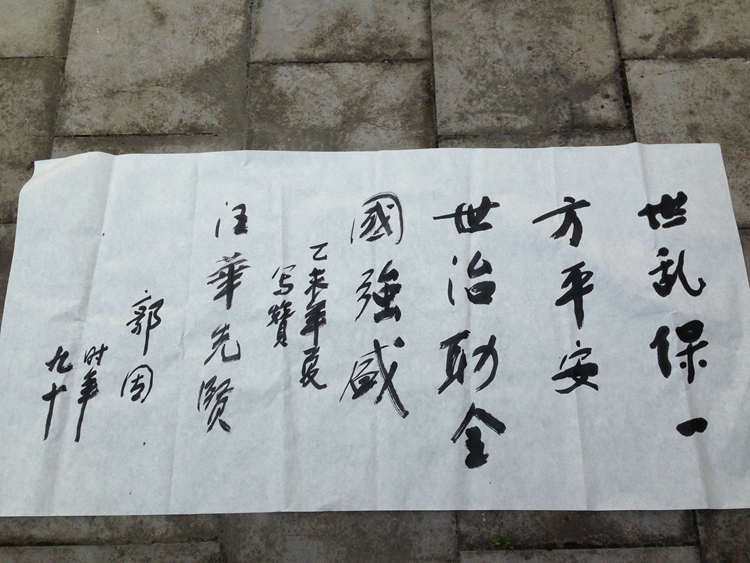 世乱保一
方平安
世治助全
國強盛
乙未年夏
写贊
汪華先賢
郭因
时年
九十